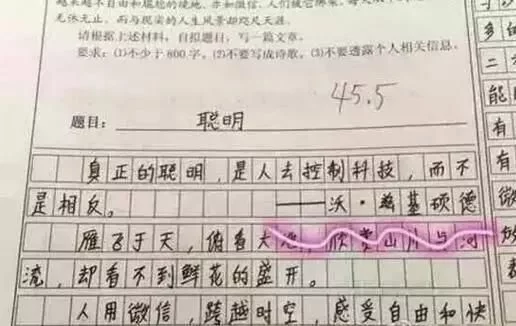 越来越不自由和尴尬的境地。亦如微信，人们被它绑架，
无休无止，而与现实的人生风景却咫尺天涯。
请根据上述材料，自拟题目，写一篇文章。
要求：(1)不少于800字。(2)不要写成诗歌。(3)不要透露个人相关信息。
45.5
题目：聪明
真正的聪明，是人去控制科技，而不
是相反。
——沃·兹基硕德
雁飞于天，俯看大地，欣赏山川与河
流，却看不到鲜花的盛开。
人用微信，跨越时空，感受自由和快
多的
二
能
有
有
微